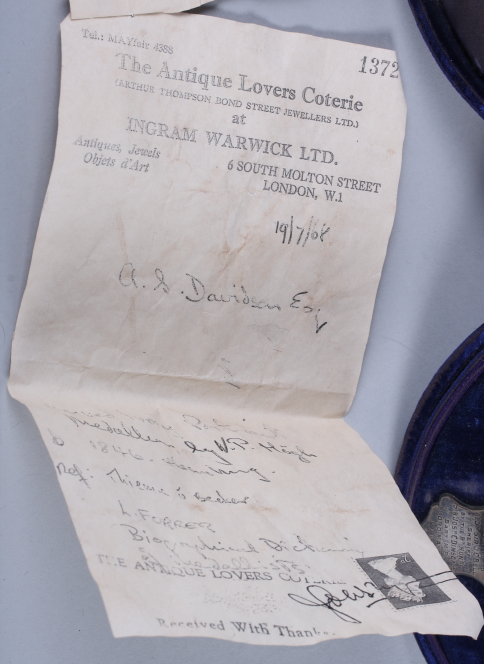 Tel.: MAYfair 4388
1372
The Antique Lovers Coterie
(ARTHUR THOMPSON BOND STREET JEWELLERS LTD.)
at
INGRAM WARWICK LTD.
Antiques, Jewels
Objets d'Art
6 SOUTH MOLTON STREET
LONDON, W.1
19/7/68
A. S. Davidson Esq
Medallion by
1846
Ref: Thieme & Becker
L. FORRER
Biographical Dictionary
THE ANTIQUE LOVERS
Received With Thanks